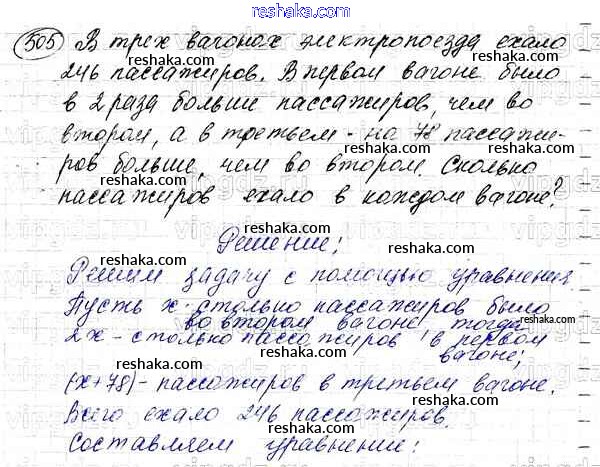 reshaka.com
505 В трех вагонах электропоезда ехало
246 пассажиров. В первом вагоне было
в 2 раза больше пассажиров, чем во
втором, а в третьем - на 78 пассажи-
ров больше, чем во втором. Сколько
пассажиров ехало в каждом вагоне?
Решение:
Решим задачу с помощью уравнения.
Пусть x - столько пассажиров было
во втором вагоне, тогда
2x - столько пассажиров в первом
вагоне;
(x+78) - пассажиров в третьем вагоне.
Всего ехало 246 пассажиров.
Составляем уравнение: